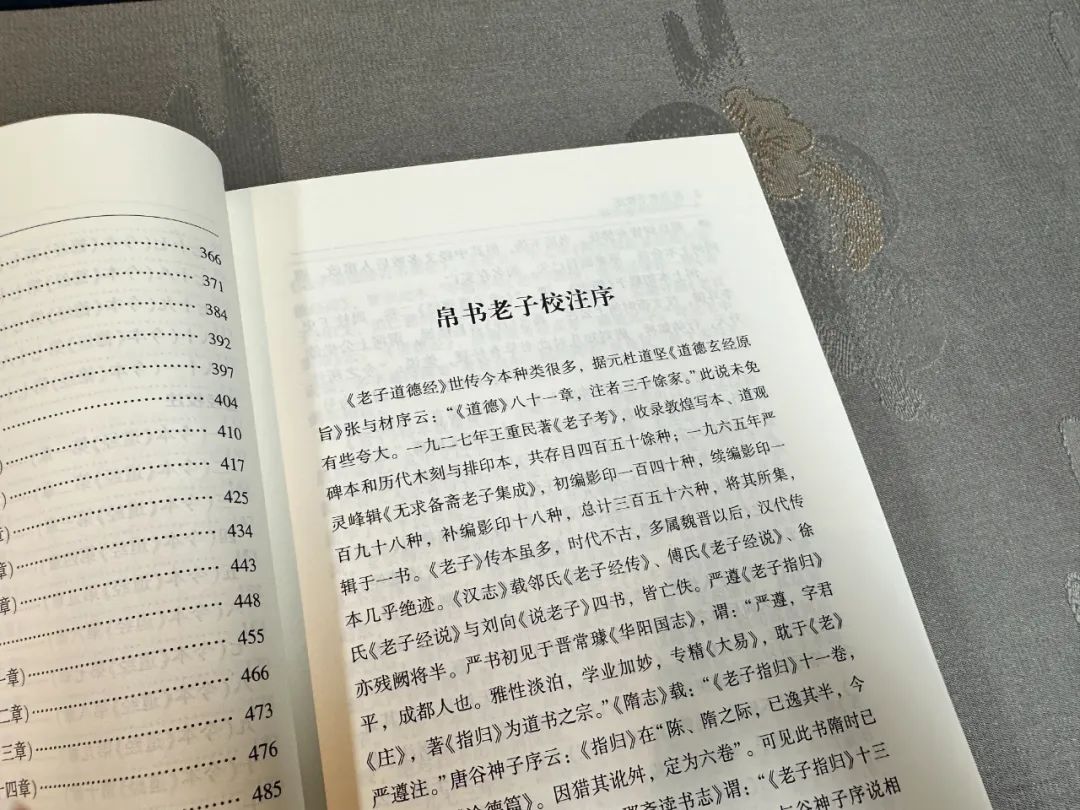 366
371
384
392
397
404
410
417
425
434
443
448
455
466
473
476
485
章)
二章)
三章)
十四章)
帛书老子校注序
《老子道德经》世传今本种类很多，据元杜道坚《道德玄经原
旨》张与材序云：“《道德》八十一章，注者三千馀家。”此说未免
有些夸大。一九二七年王重民著《老子考》，收录敦煌写本、道观
碑本和历代木刻与排印本，共存目四百五十馀种；一九六五年严
灵峰辑《无求备斋老子集成》，初编影印一百四十种，续编影印一
百九十八种，补编影印十八种，总计三百五十六种，将其所集，
辑于一书。《老子》传本虽多，时代不古，多属魏晋以后，汉代传
本几乎绝迹。《汉志》载邻氏《老子经传》、傅氏《老子经说》、徐
氏《老子经说》与刘向《说老子》四书，皆亡佚。严遵《老子指归》
亦残阙将半。严书初见于晋常璩《华阳国志》，谓：“严遵，字君
平，成都人也。雅性淡泊，学业加妙，专精《大易》，耽于《老》
《庄》，著《指归》为道书之宗。”《隋志》载：“《老子指归》十一卷，
严遵注。”唐谷神子序云：《指归》在“陈、隋之际，已逸其半，今
论德篇》。因猎其讹舛，定为六卷”。可见此书隋时已
斋读书志》谓：“《老子指归》十三
谷神子序说相